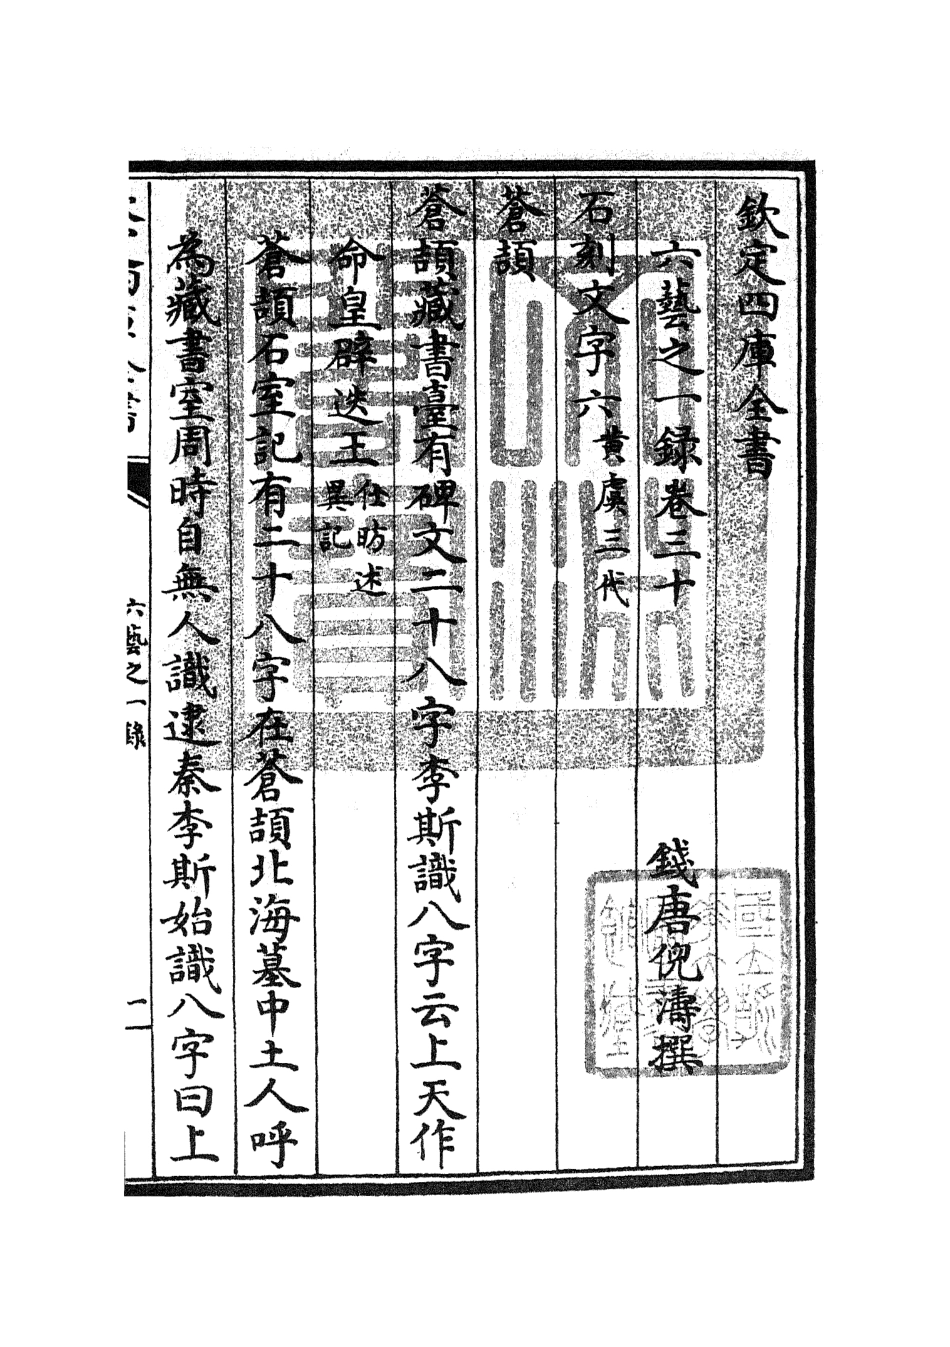 欽定四庫全書
六藝之一録卷三十
錢唐倪濤撰
石刻文字六黄虞三代
蒼頡
蒼頡藏書臺有碑文二十八字李斯識八字云上天作
命皇辟迭王任昉述
異記
蒼頡石室記有二十八字在蒼頡北海墓中土人呼
為藏書室周時自無人識逮秦李斯始識八字曰上
六藝之一録